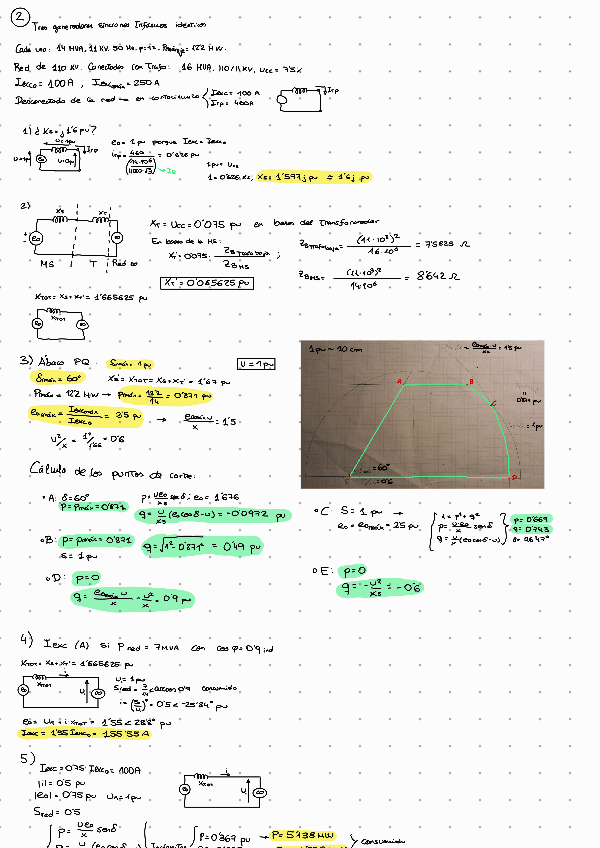 2 Tres generadores síncronos trifásicos idénticos
Cada uno: 14 MVA, 11 KV, 50 Hz, p=12, Pmáxmje=12'2 MW.
Red de 110 KV. Conectados con Trafo: 16 MVA, 110/11 KV, Ucc = 7'5%
Iexco = 100 A, Iexcmáx = 250 A
Desconectado de la red → en cortocircuito { Iexc = 100 A
Irp = 460 A
Irp
1) ¿ Xs = j 1'6 pu?
u=1pu
u=0pu
Irp
e0 = 1 pu porque Iexc = Iexco
irp = 460 / (14·10⁶ / 11000·√3) = 0'626 pu
→ IB
1 = 0'626·Xs, Xs = 1'597j pu ≈ 1'6j pu
2)
Xs XT
e0
MS T Red ∞
XT = Ucc = 0'075 pu en bases del Transformador
En bases de la MS:
XT' = 0'075 · ZB Trafo baja / ZB MS ;
XT' = 0'065625 pu
ZB Trafo baja = (11·10³)² / 16·10⁶ = 7'5625 Ω
ZB MS = (11·10³)² / 14·10⁶ = 8'642 Ω
XTOT = Xs + XT' = 1'665625 pu
e0 XTOT
3) Ábaco PQ:
U = 1 pu
δmáx = 60°
Xs' = XTOT = Xs + XT' = 1'67 pu
Pmáx = 12'2 MW → pmáx = 12'2 / 14 = 0'871 pu
e0máx = Iexcmáx / Iexco = 2'5 pu → e0máx·u / x = 1'5
u²/x = 1²/1'66 = 0'6
1 pu = 10 cm
e0máx·u / xs = 1'5 pu
A B
C
0'871 pu
= 1 pu
= 60°
= 0'6
E D
Cálculo de los puntos de corte:
• A: δ = 60°
p = pmáx = 0'871
p = u e0 / xs senδ ; e0 = 1'676
q = u/xs (e0 cosδ - u) = -0'0972 pu
• B: p = pmáx = 0'871
s = 1 pu
q = √1² - 0'871² = 0'49 pu
• D: p = 0
q = e0máx u / x - u²/x = 0'9 pu
• C S = 1 pu →
e0 = e0máx = 2'5 pu
{ 1 = p² + q²
p = u e0 / x senδ
q = u/x (e0 cosδ - u)
p = 0'669
q = 0'743
δ = 26'47°
• E: p = 0
q = -u²/xs = -0'6
4) Iexc (A) si P red = 7 MVA con cos φ = 0'9 ind
XTOT = Xs + XT' = 1'665625 pu
e0 XTOT i U
U = 1 pu
i = 0'5 < -25'84° pu
Iexc = 1'55 Iexco = 155'55 A
5)
Iexc = 0'75 · Iexco = 100 A
|i| = 0'5 pu
|e0| = 0'75 pu UR = 1 pu
Sred = 0'5
XTOT i U
{ p = u e0 / x senδ
Incógnitas
{ P = 0'367 pu → P = 5'138 MW
consumida